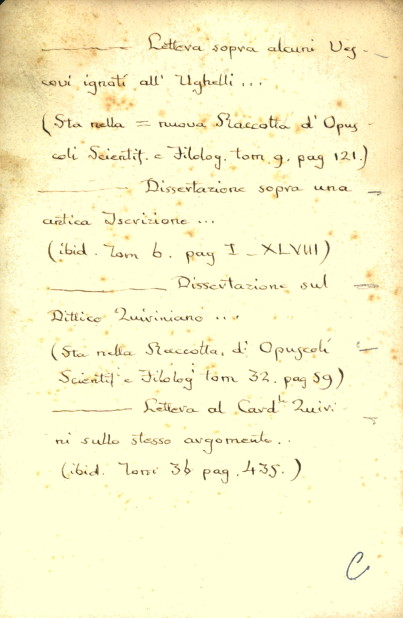 ——— Lettera sopra alcuni Ves-
covi ignoti all' Ughelli ...
(Sta nella = nuova Raccolta d'Opus-
coli Scientif. e Filolog. tom. 9. pag 121.)
——— Dissertazione sopra una
antica Iscrizione ...
(ibid. Tom 6. pag I - XLVIII)
——— Dissertazione sul
Dittico Quiriniano ...
(Sta nella Raccolta, d'Opuscoli
Scientif e Filolog tom 32. pag 59)
——— Lettera al Card.le Quiri-
ni sullo stesso argomento..
(ibid. Tom 36 pag. 435.)
C